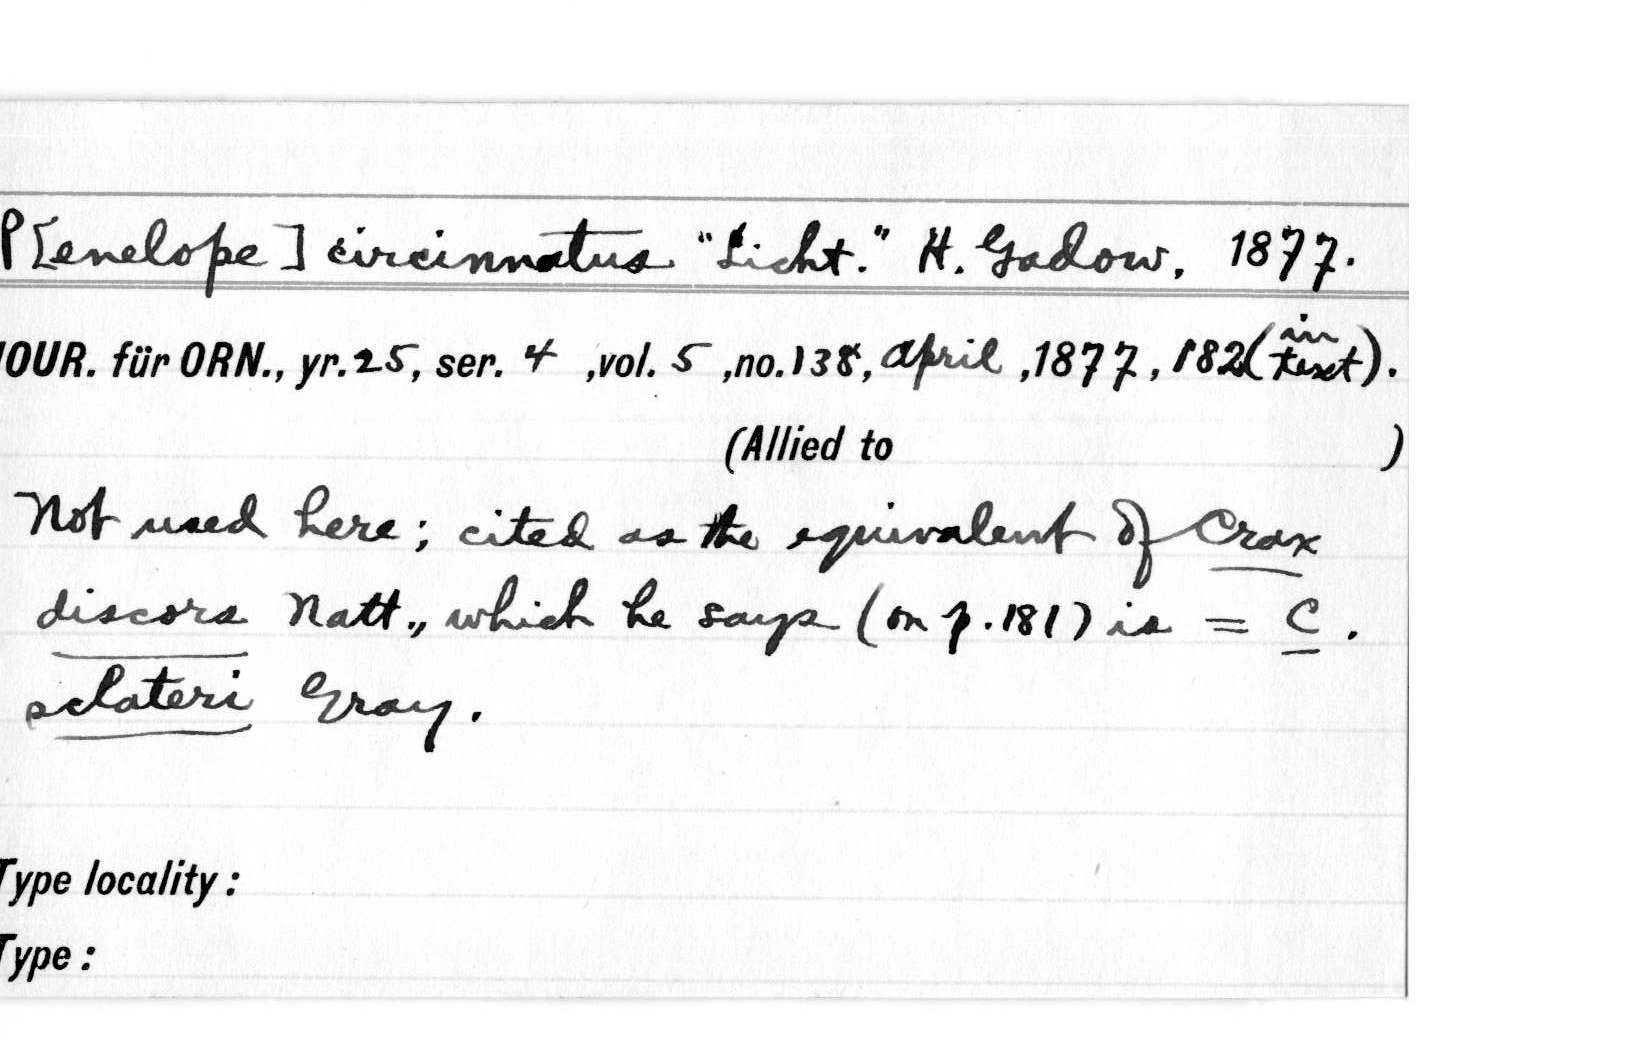 P[enelope] circinnatus "Licht." H. Gadow, 1877.
JOUR. für ORN., yr. 25, ser. 4 , vol. 5 , no. 138, April , 1877, 182 (in text).
(Allied to )
Not used here; cited as the equivalent of Crax
discors Natt., which he says (on p. 181) is = C.
sclateri Gray.
Type locality:
Type: